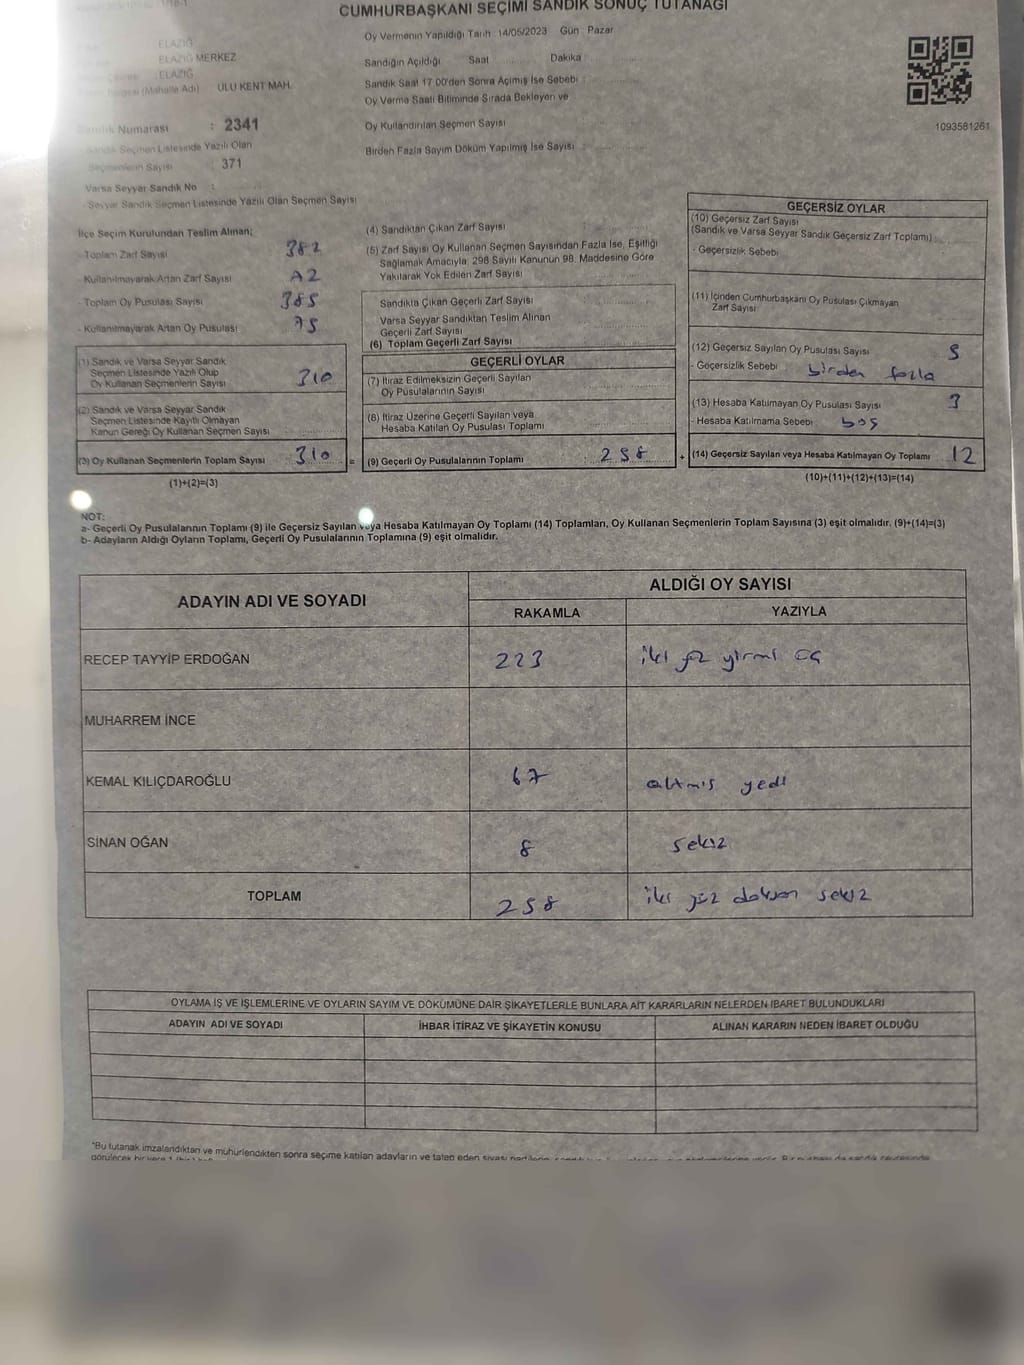 CUMHURBAŞKANI SEÇİMİ SANDIK SONUÇ TUTANAĞI
Oy Vermenin Yapıldığı Tarih : 14/05/2023 Gün : Pazar
ELAZIĞ
ELAZIĞ MERKEZ
ELAZIĞ
(Mahalle Adı) ULU KENT MAH.
Sandık Numarası : 2341
Sandık Seçmen Listesinde Yazılı Olan
Seçmenlerin Sayısı : 371
Varsa Seyyar Sandık No :
- Seyyar Sandık Seçmen Listesinde Yazılı Olan Seçmen Sayısı
Sandığın Açıldığı Saat Dakika
Sandık Saat 17.00'den Sonra Açılmış İse Sebebi :
Oy Verme Saati Bitiminde Sırada Bekleyen ve
Oy Kullandırılan Seçmen Sayısı :
Birden Fazla Sayım Döküm Yapılmış İse Sayısı :
1093581261
İlçe Seçim Kurulundan Teslim Alınan;
- Toplam Zarf Sayısı 382
- Kullanılmayarak Artan Zarf Sayısı
- Toplam Oy Pusulası Sayısı 385
- Kullanılmayarak Artan Oy Pusulası 75
(1) Sandık ve Varsa Seyyar Sandık
Seçmen Listesinde Yazılı Olup
Oy Kullanan Seçmenlerin Sayısı 310
(2) Sandık ve Varsa Seyyar Sandık
Seçmen Listesinde Kayıtlı Olmayan
Kanun Gereği Oy Kullanan Seçmen Sayısı
(3) Oy Kullanan Seçmenlerin Toplam Sayısı 310 =
(1)+(2)=(3)
(4) Sandıktan Çıkan Zarf Sayısı
(5) Zarf Sayısı Oy Kullanan Seçmen Sayısından Fazla İse, Eşitliği
Sağlamak Amacıyla; 298 Sayılı Kanunun 98. Maddesine Göre
Yakılarak Yok Edilen Zarf Sayısı
Sandıkta Çıkan Geçerli Zarf Sayısı
Varsa Seyyar Sandıktan Teslim Alınan
Geçerli Zarf Sayısı
(6) Toplam Geçerli Zarf Sayısı
GEÇERLİ OYLAR
(7) İtiraz Edilmeksizin Geçerli Sayılan
Oy Pusulalarının Sayısı
(8) İtiraz Üzerine Geçerli Sayılan veya
Hesaba Katılan Oy Pusulası Toplamı
(9) Geçerli Oy Pusulalarının Toplamı 298 +
GEÇERSİZ OYLAR
(10) Geçersiz Zarf Sayısı
(Sandık ve Varsa Seyyar Sandık Geçersiz Zarf Toplamı) :
- Geçersizlik Sebebi
(11) İçinden Cumhurbaşkanı Oy Pusulası Çıkmayan
Zarf Sayısı
(12) Geçersiz Sayılan Oy Pusulası Sayısı 9
- Geçersizlik Sebebi birden fazla
(13) Hesaba Katılmayan Oy Pusulası Sayısı 3
- Hesaba Katılmama Sebebi boş
(14) Geçersiz Sayılan veya Hesaba Katılmayan Oy Toplamı 12
(10)+(11)+(12)+(13)=(14)
NOT:
a- Geçerli Oy Pusulalarının Toplamı (9) ile Geçersiz Sayılan veya Hesaba Katılmayan Oy Toplamı (14) Toplamları, Oy Kullanan Seçmenlerin Toplam Sayısına (3) eşit olmalıdır. (9)+(14)=(3)
b- Adayların Aldığı Oyların Toplamı, Geçerli Oy Pusulalarının Toplamına (9) eşit olmalıdır.
ADAYIN ADI VE SOYADI ALDIĞI OY SAYISI
RAKAMLA YAZIYLA
RECEP TAYYİP ERDOĞAN 223 iki yüz yirmi üç
MUHARREM İNCE
KEMAL KILIÇDAROĞLU 67 altmış yedi
SİNAN OĞAN 8 sekiz
TOPLAM 298 iki yüz doksan sekiz
OYLAMA İŞ VE İŞLEMLERİNE VE OYLARIN SAYIM VE DÖKÜMÜNE DAİR ŞİKAYETLERLE BUNLARA AİT KARARLARIN NELERDEN İBARET BULUNDUKLARI
ADAYIN ADI VE SOYADI İHBAR İTİRAZ VE ŞİKAYETİN KONUSU ALINAN KARARIN NEDEN İBARET OLDUĞU
*Bu tutanak imzalandıktan ve mühürlendikten sonra seçime katılan adayların ve talep eden siyasi partilerin